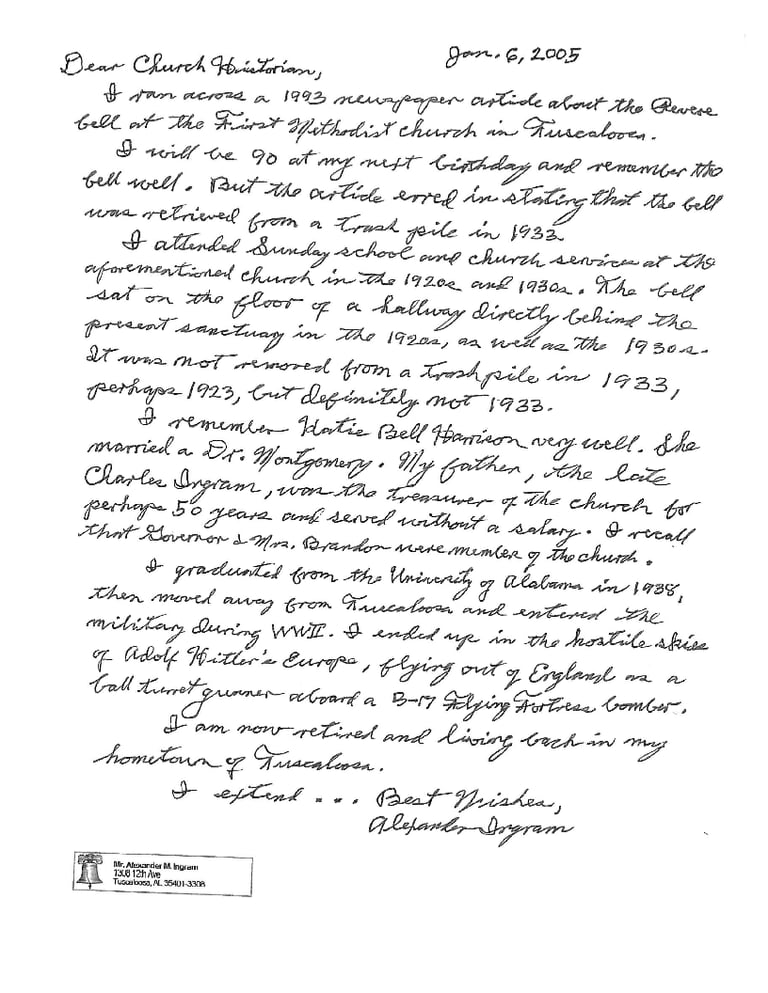 Jan. 6, 2005
Dear Church Historian,
I ran across a 1993 newspaper article about the Revere
bell at the First Methodist church in Tuscaloosa.
I will be 90 at my next birthday and remember the
bell well. But the article erred in stating that the bell
was retrieved from a trash pile in 1933.
I attended Sunday school and church services at the
aforementioned church in the 1920s and 1930s. The bell
sat on the floor of a hallway directly behind the
present sanctuary in the 1920s, as well as the 1930s.
It was not removed from a trash pile in 1933,
perhaps 1923, but definitely not 1933.
I remember Katie Bell Harrison very well. She
married a Dr. Montgomery. My father, the late
Charles Ingram, was the treasurer of the church for
perhaps 50 years and served without a salary. I recall
that Governor & Mrs. Brandon were member of the church.
I graduated from the University of Alabama in 1938,
then moved away from Tuscaloosa and entered the
military during WWII. I ended up in the hostile skies
of Adolf Hitler's Europe, flying out of England as a
ball turret gunner aboard a B-17 Flying Fortress bomber.
I am now retired and living back in my
hometown of Tuscaloosa.
I extend ... Best Wishes,
Alexander Ingram
Mr. Alexander M. Ingram
1308 12th Ave
Tuscaloosa, AL 35401-3308